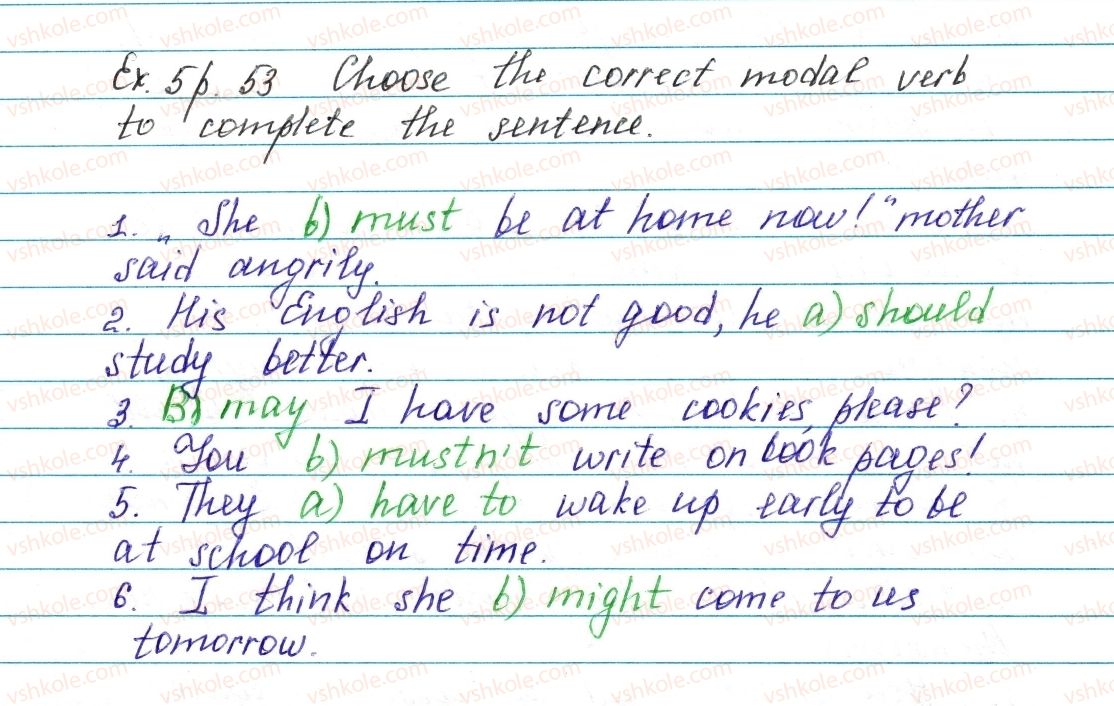 Ex. 5 p. 53 Choose the correct modal verb
to complete the sentence.
1. „She b) must be at home now!" mother
said angrily.
2. His English is not good, he a) should
study better.
3. B) may I have some cookies, please?
4. You b) mustn't write on book pages!
5. They a) have to wake up early to be
at school on time.
6. I think she b) might come to us
tomorrow.